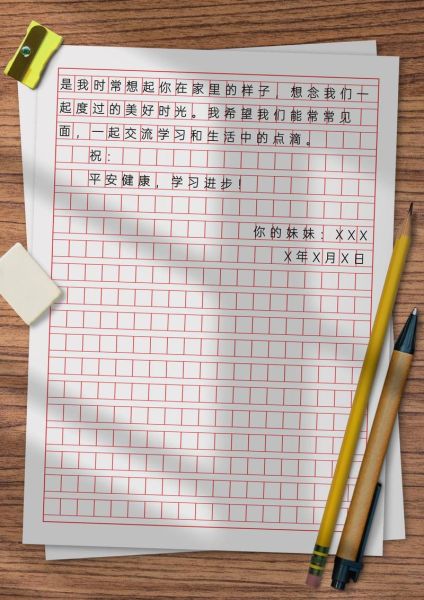 是我时常想起你在家里的样子，想念我们一
起度过的美好时光。我希望我们能常常见
面，一起交流学习和生活中的点滴。
祝：
平安健康，学习进步！
你的妹妹：XXX
X年X月X日